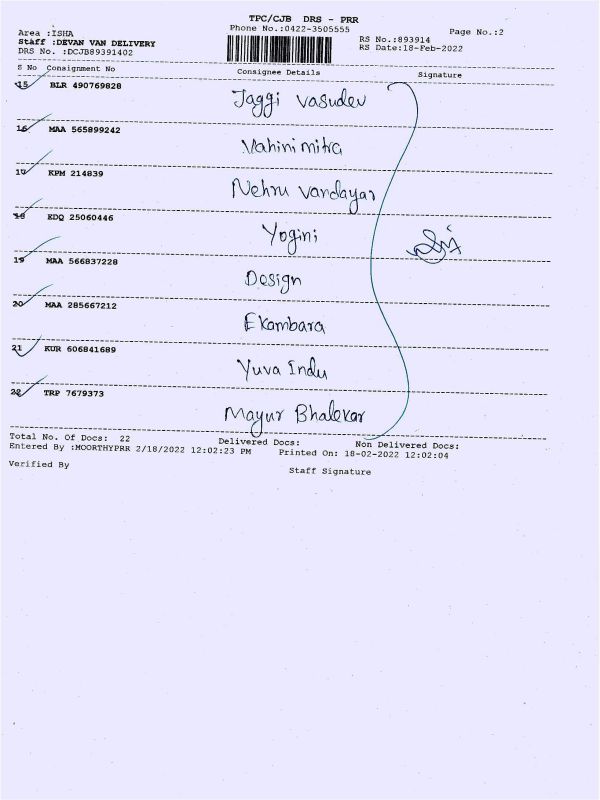 TPC/CJB DRS - PRR
Area :ISHA Phone No.:0422-3505555 Page No.:2
Staff :DEVAN VAN DELIVERY RS No.:893914
DRS No. :DCJB89391402 RS Date:18-Feb-2022
S No Consignment No Consignee Details Signature
15 BLR 490769828 Jaggi Vasudev
16 MAA 565899242 Vahini mitra
17 KPM 214839 Nehru Vandayar
18 EDQ 25060446 Yogini
19 MAA 566837228 Design
20 MAA 285667212 Ekambara
21 KUR 606841689 Yuva Indu
22 TRP 7679373 Mayur Bhalekar
Total No. Of Docs: 22 Delivered Docs: Non Delivered Docs:
Entered By :MOORTHYPRR 2/18/2022 12:02:23 PM Printed On: 18-02-2022 12:02:04
Verified By Staff Signature